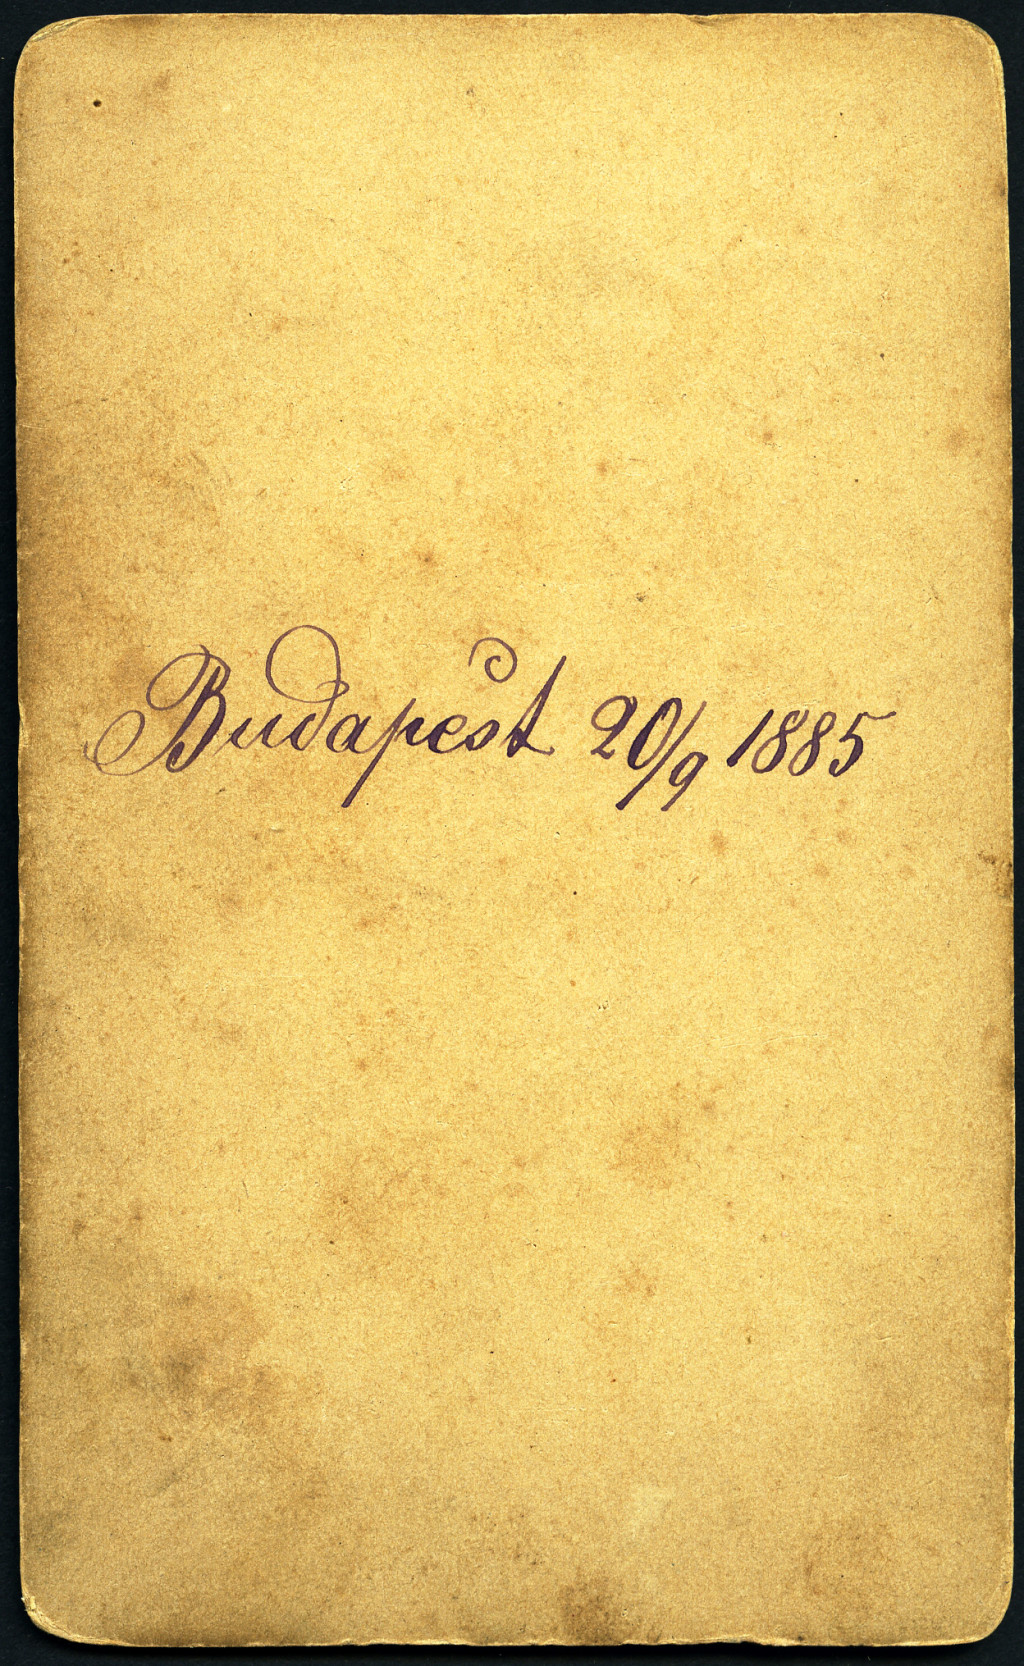 Budapest 20/9 1885